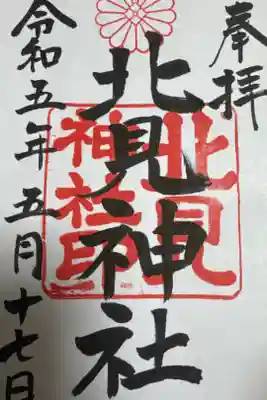 奉拝
北見神社
北見
神社印
令和五年五月十七日